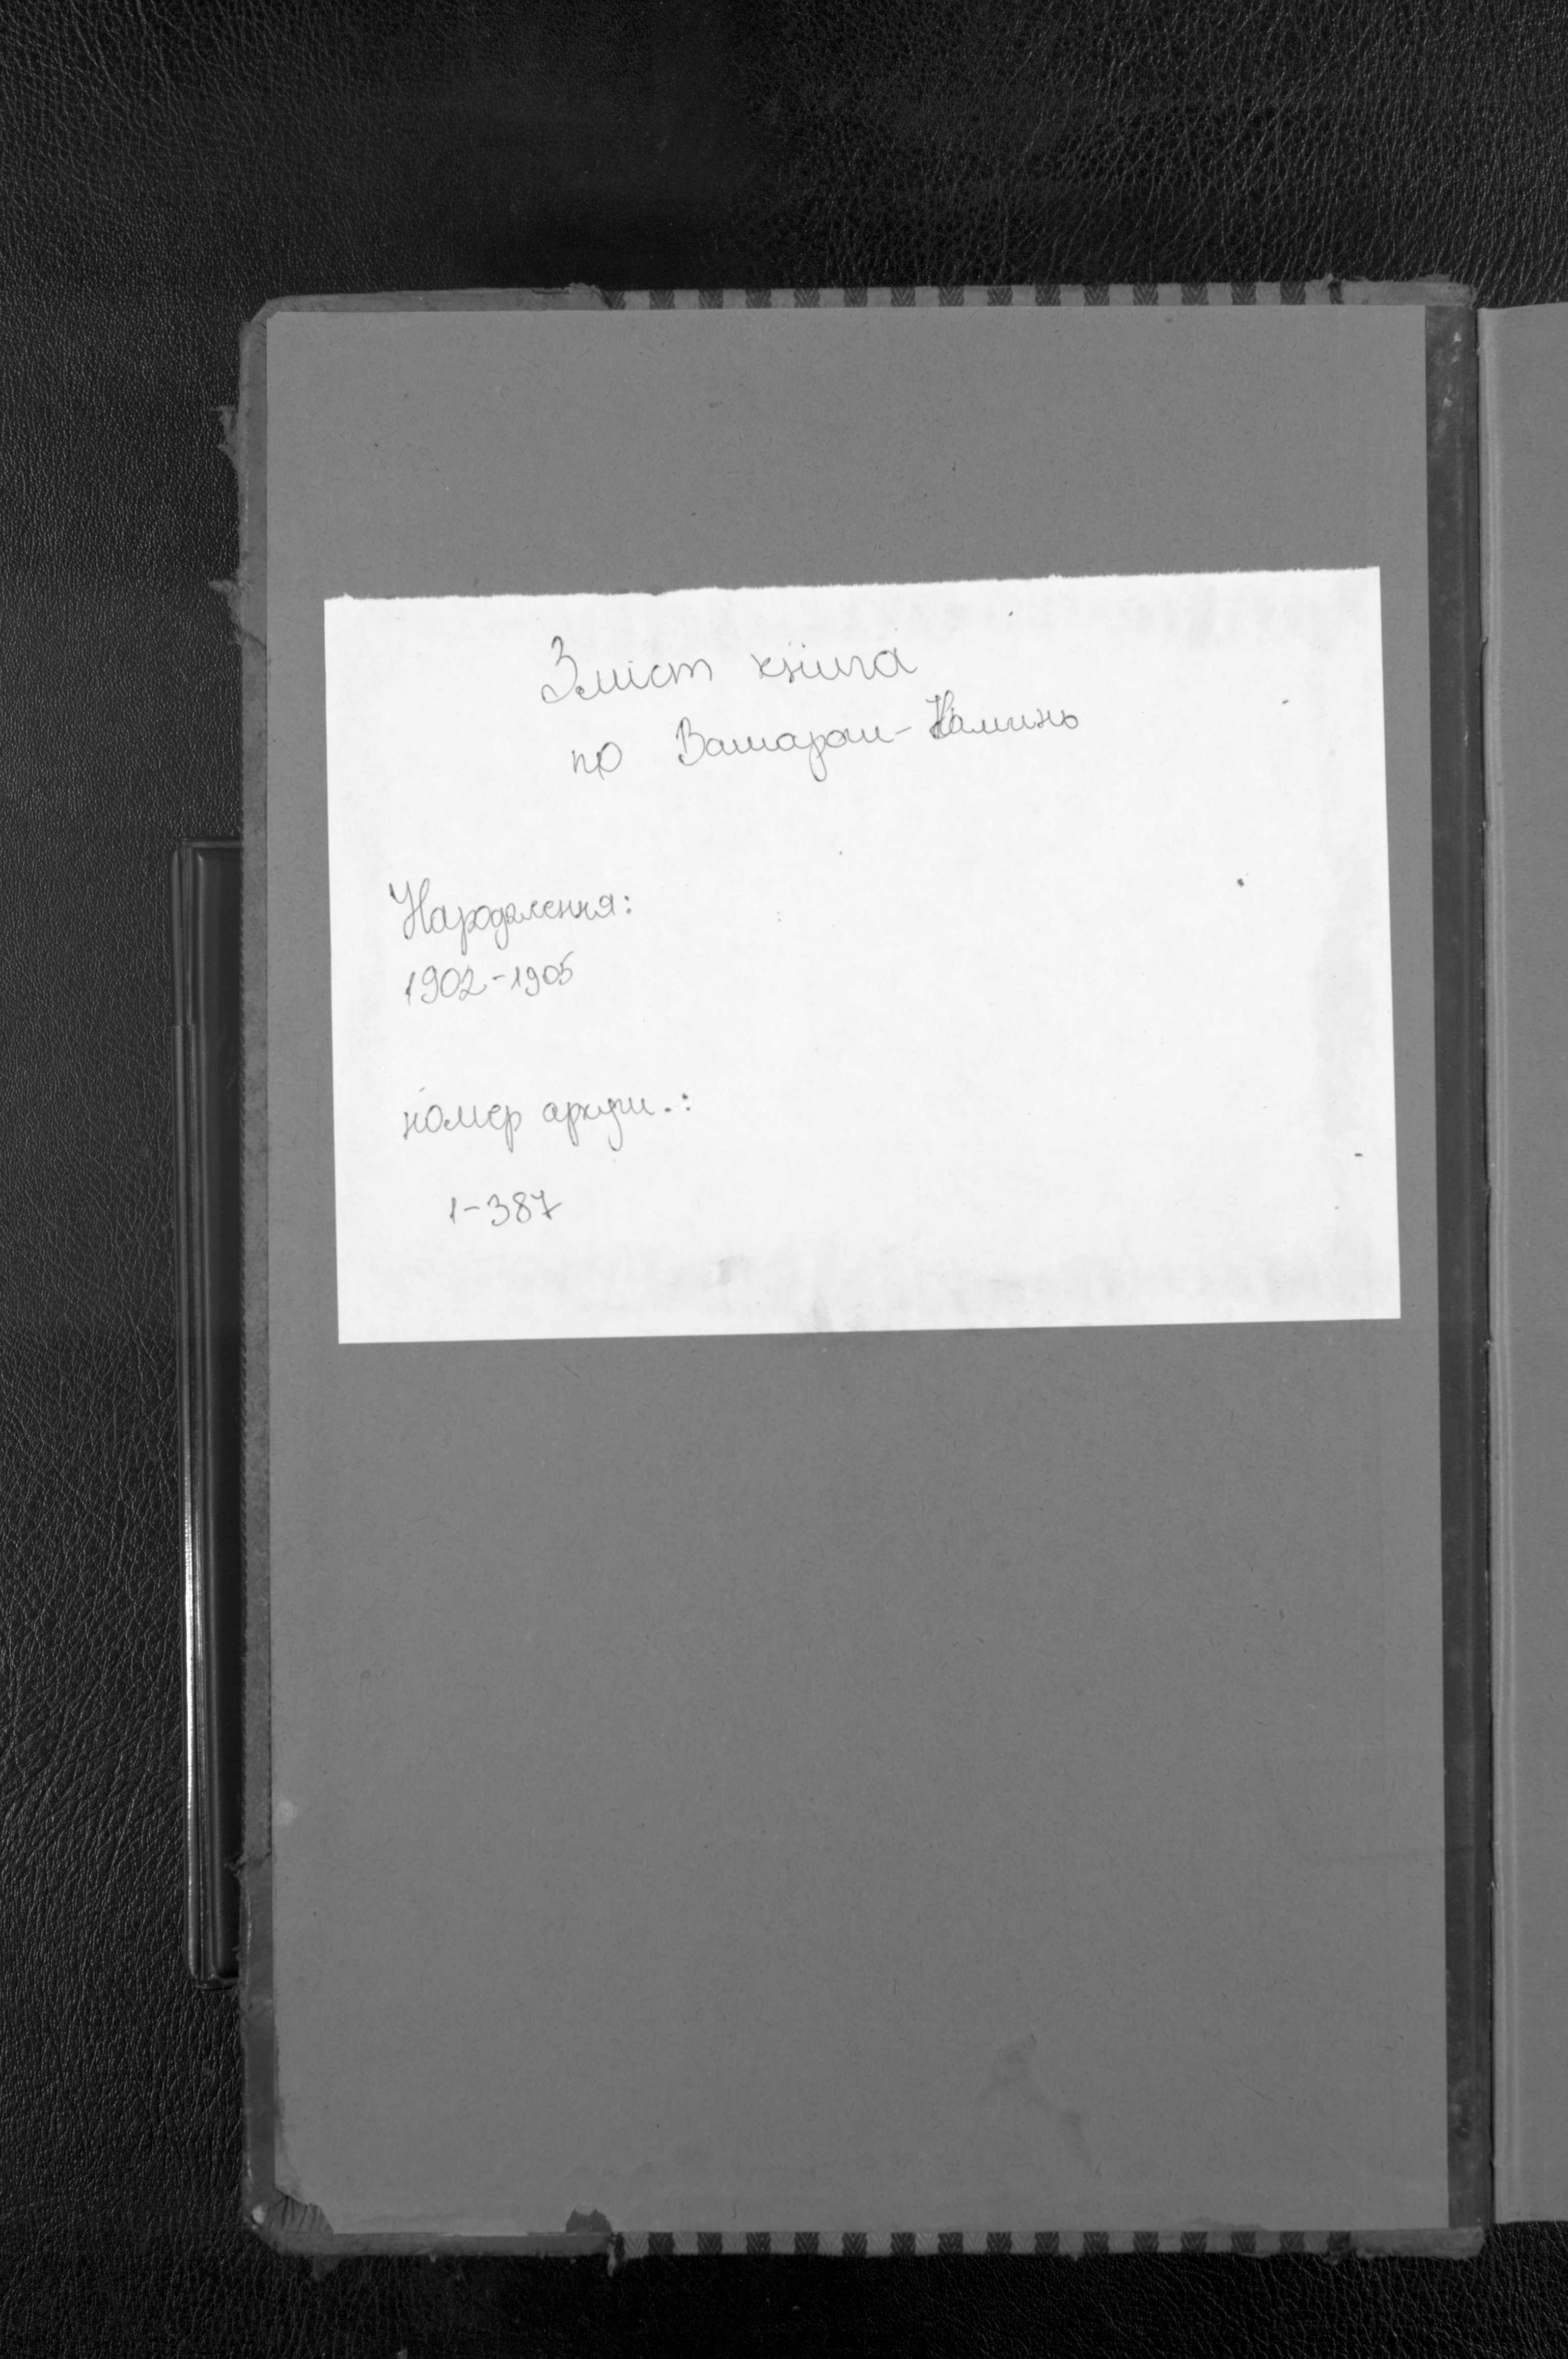 Зміст книга
по Вашарош-Наминь
Народження:
1902-1905
номер аркуш.:
1-387